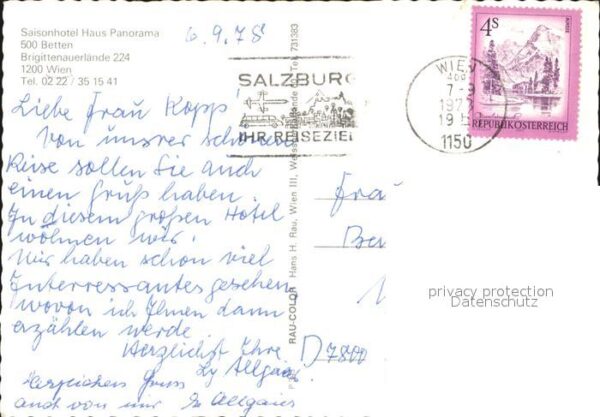 Saisonhotel Haus Panorama
500 Betten
Brigittenauerlände 224
1200 Wien
Tel. 02 22 / 35 15 41
6.9.78
Liebe Frau Kopp!
Von unsrer schönen
Reise sollen Sie auch
einen Gruß haben.
In diesem großen Hotel
wohnen wir.
Wir haben schon viel
Interressantes gesehen
wovon ich Ihnen dann
erzählen werde.
Herzlichst Ihre
Allgaier
Herzlichen Gruss
auch von mir
RAU-COLOR Hans H. Rau, Wien III, Tel. 731383
SALZBURG
IHR REISEZIEL
WIEN
7-9
1150
4S
REPUBLIK ÖSTERREICH
Frau
D 7800
privacy protection
Datenschutz